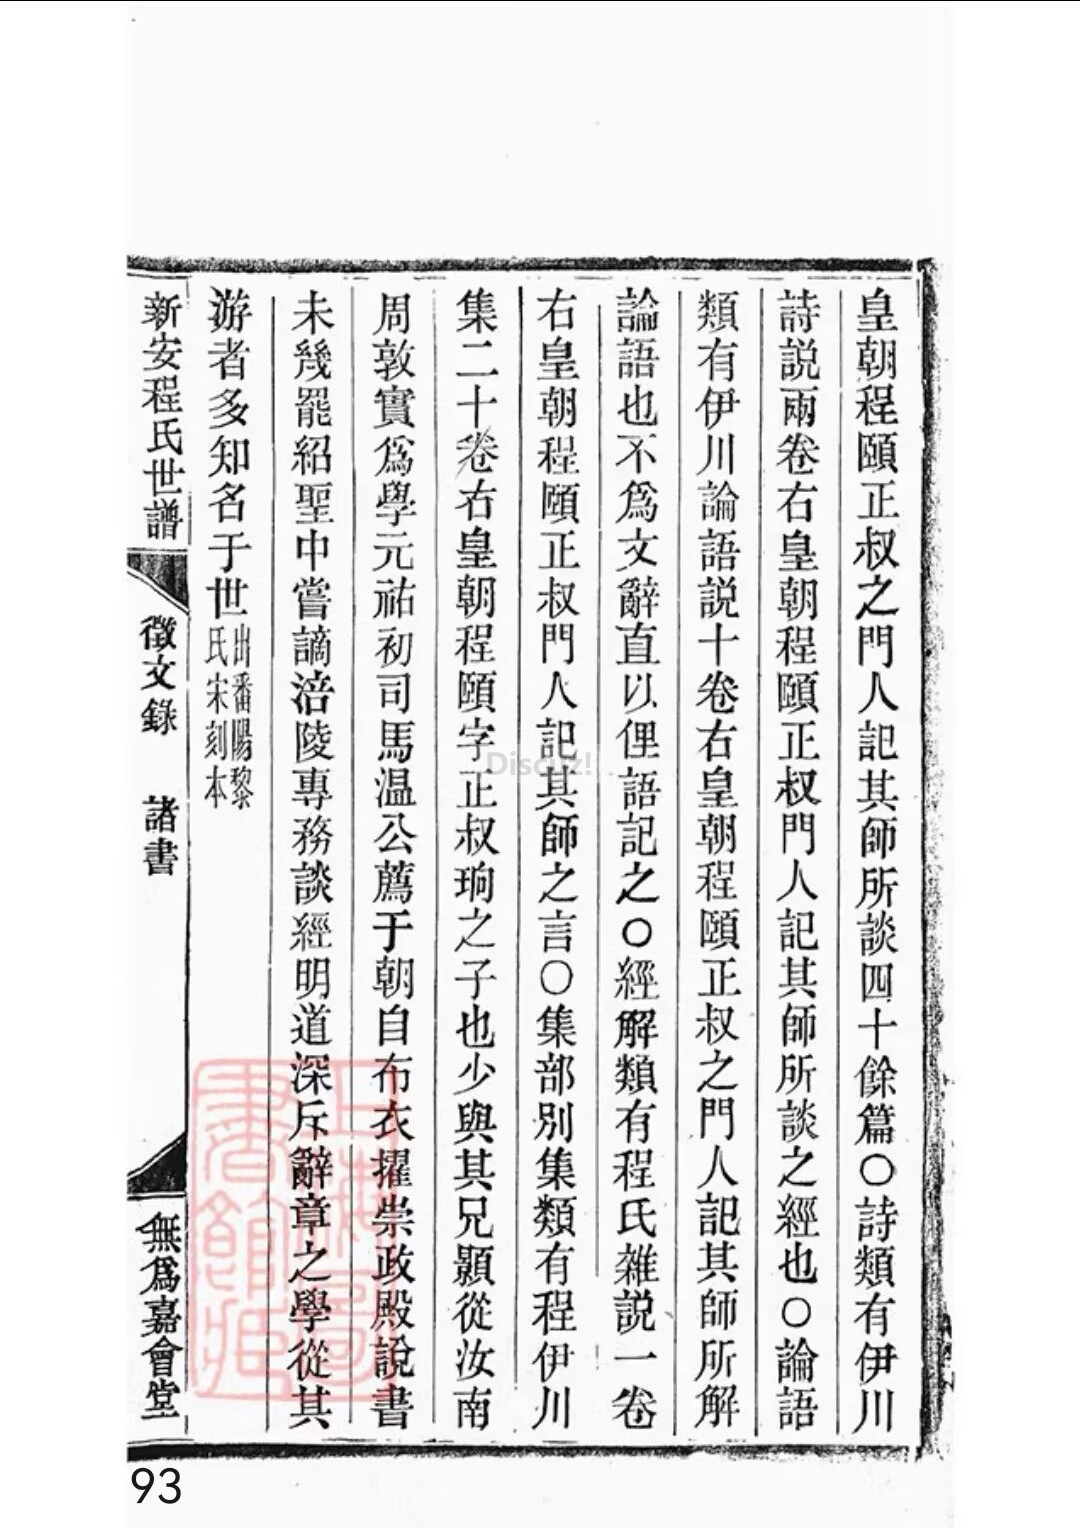 皇朝程頤正叔之門人記其師所談四十餘篇〇詩類有伊川
詩説兩卷右皇朝程頤正叔門人記其師所談之經也〇論語
類有伊川論語説十卷右皇朝程頤正叔之門人記其師所解
論語也不爲文辭直以俚語記之〇經解類有程氏雜説一卷
右皇朝程頤正叔門人記其師之言〇集部別集類有程伊川
集二十卷右皇朝程頤字正叔珦之子也少與其兄顥從汝南
周敦實爲學元祐初司馬温公薦于朝自布衣擢崇政殿說書
未幾罷紹聖中嘗謫涪陵專務談經明道深斥辭章之學從其
游者多知名于世出番陽黎
氏宋刻本
新安程氏世譜 徵文錄 諸書 無爲嘉會堂
上海圖
書館藏
Discuz!
93